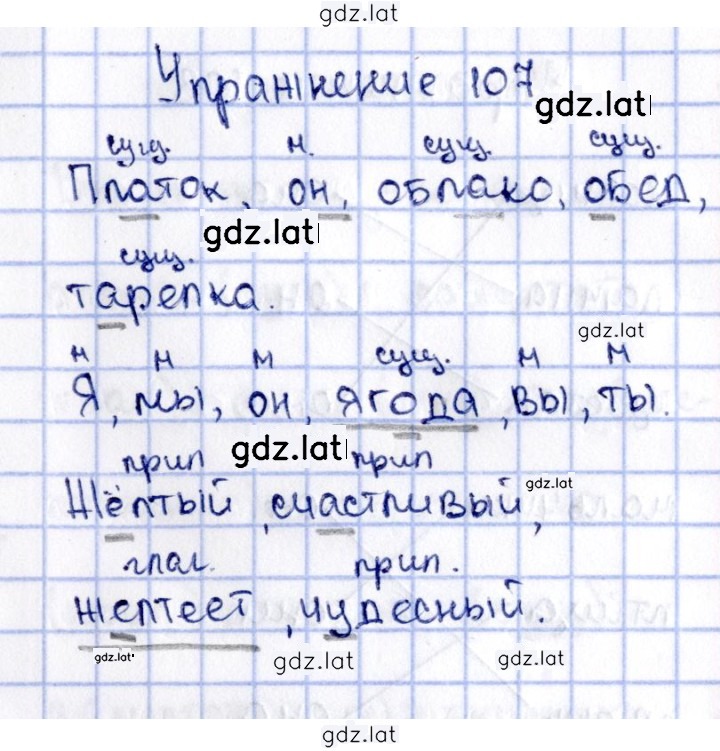 gdz.lat
Упражнение 107
gdz.lat
сущ. м. сущ. сущ.
Платок, он, облако, обед,
gdz.lat
сущ.
тарелка.
gdz.lat
м м м сущ. м м
Я, мы, он, ягода, вы, ты.
прил gdz.lat прил
gdz.lat
Жёлтый, счастливый,
глаг. прил.
желтеет, чудесный.
gdz.lat gdz.lat gdz.lat
gdz.lat